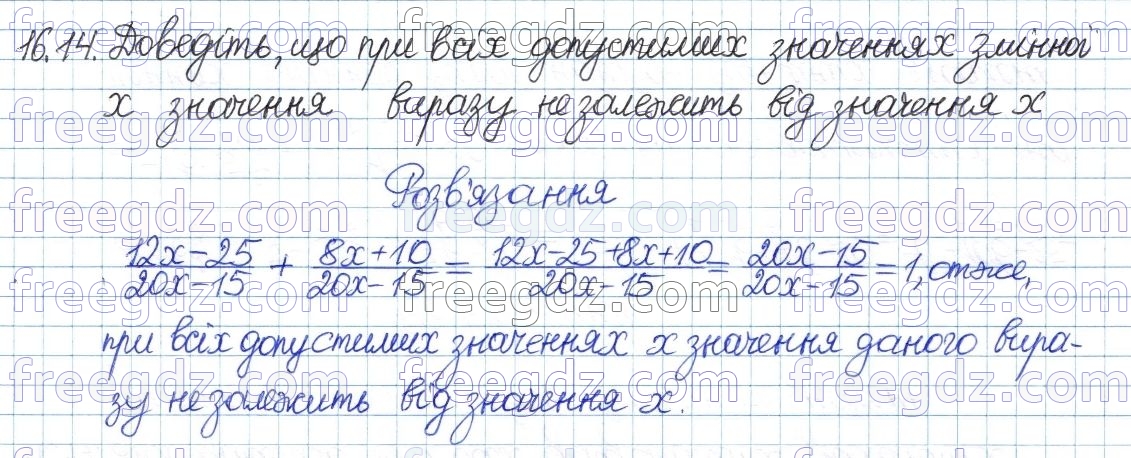 16.14. Доведіть, що при всіх допустимих значеннях змінної
x значення виразу не залежить від значення x
Розв'язання
12x-25/20x-15 + 8x+10/20x-15 = 12x-25+8x+10/20x-15 = 20x-15/20x-15 = 1, отже,
при всіх допустимих значеннях x значення даного вира-
зу не залежить від значення x.
freegdz.com